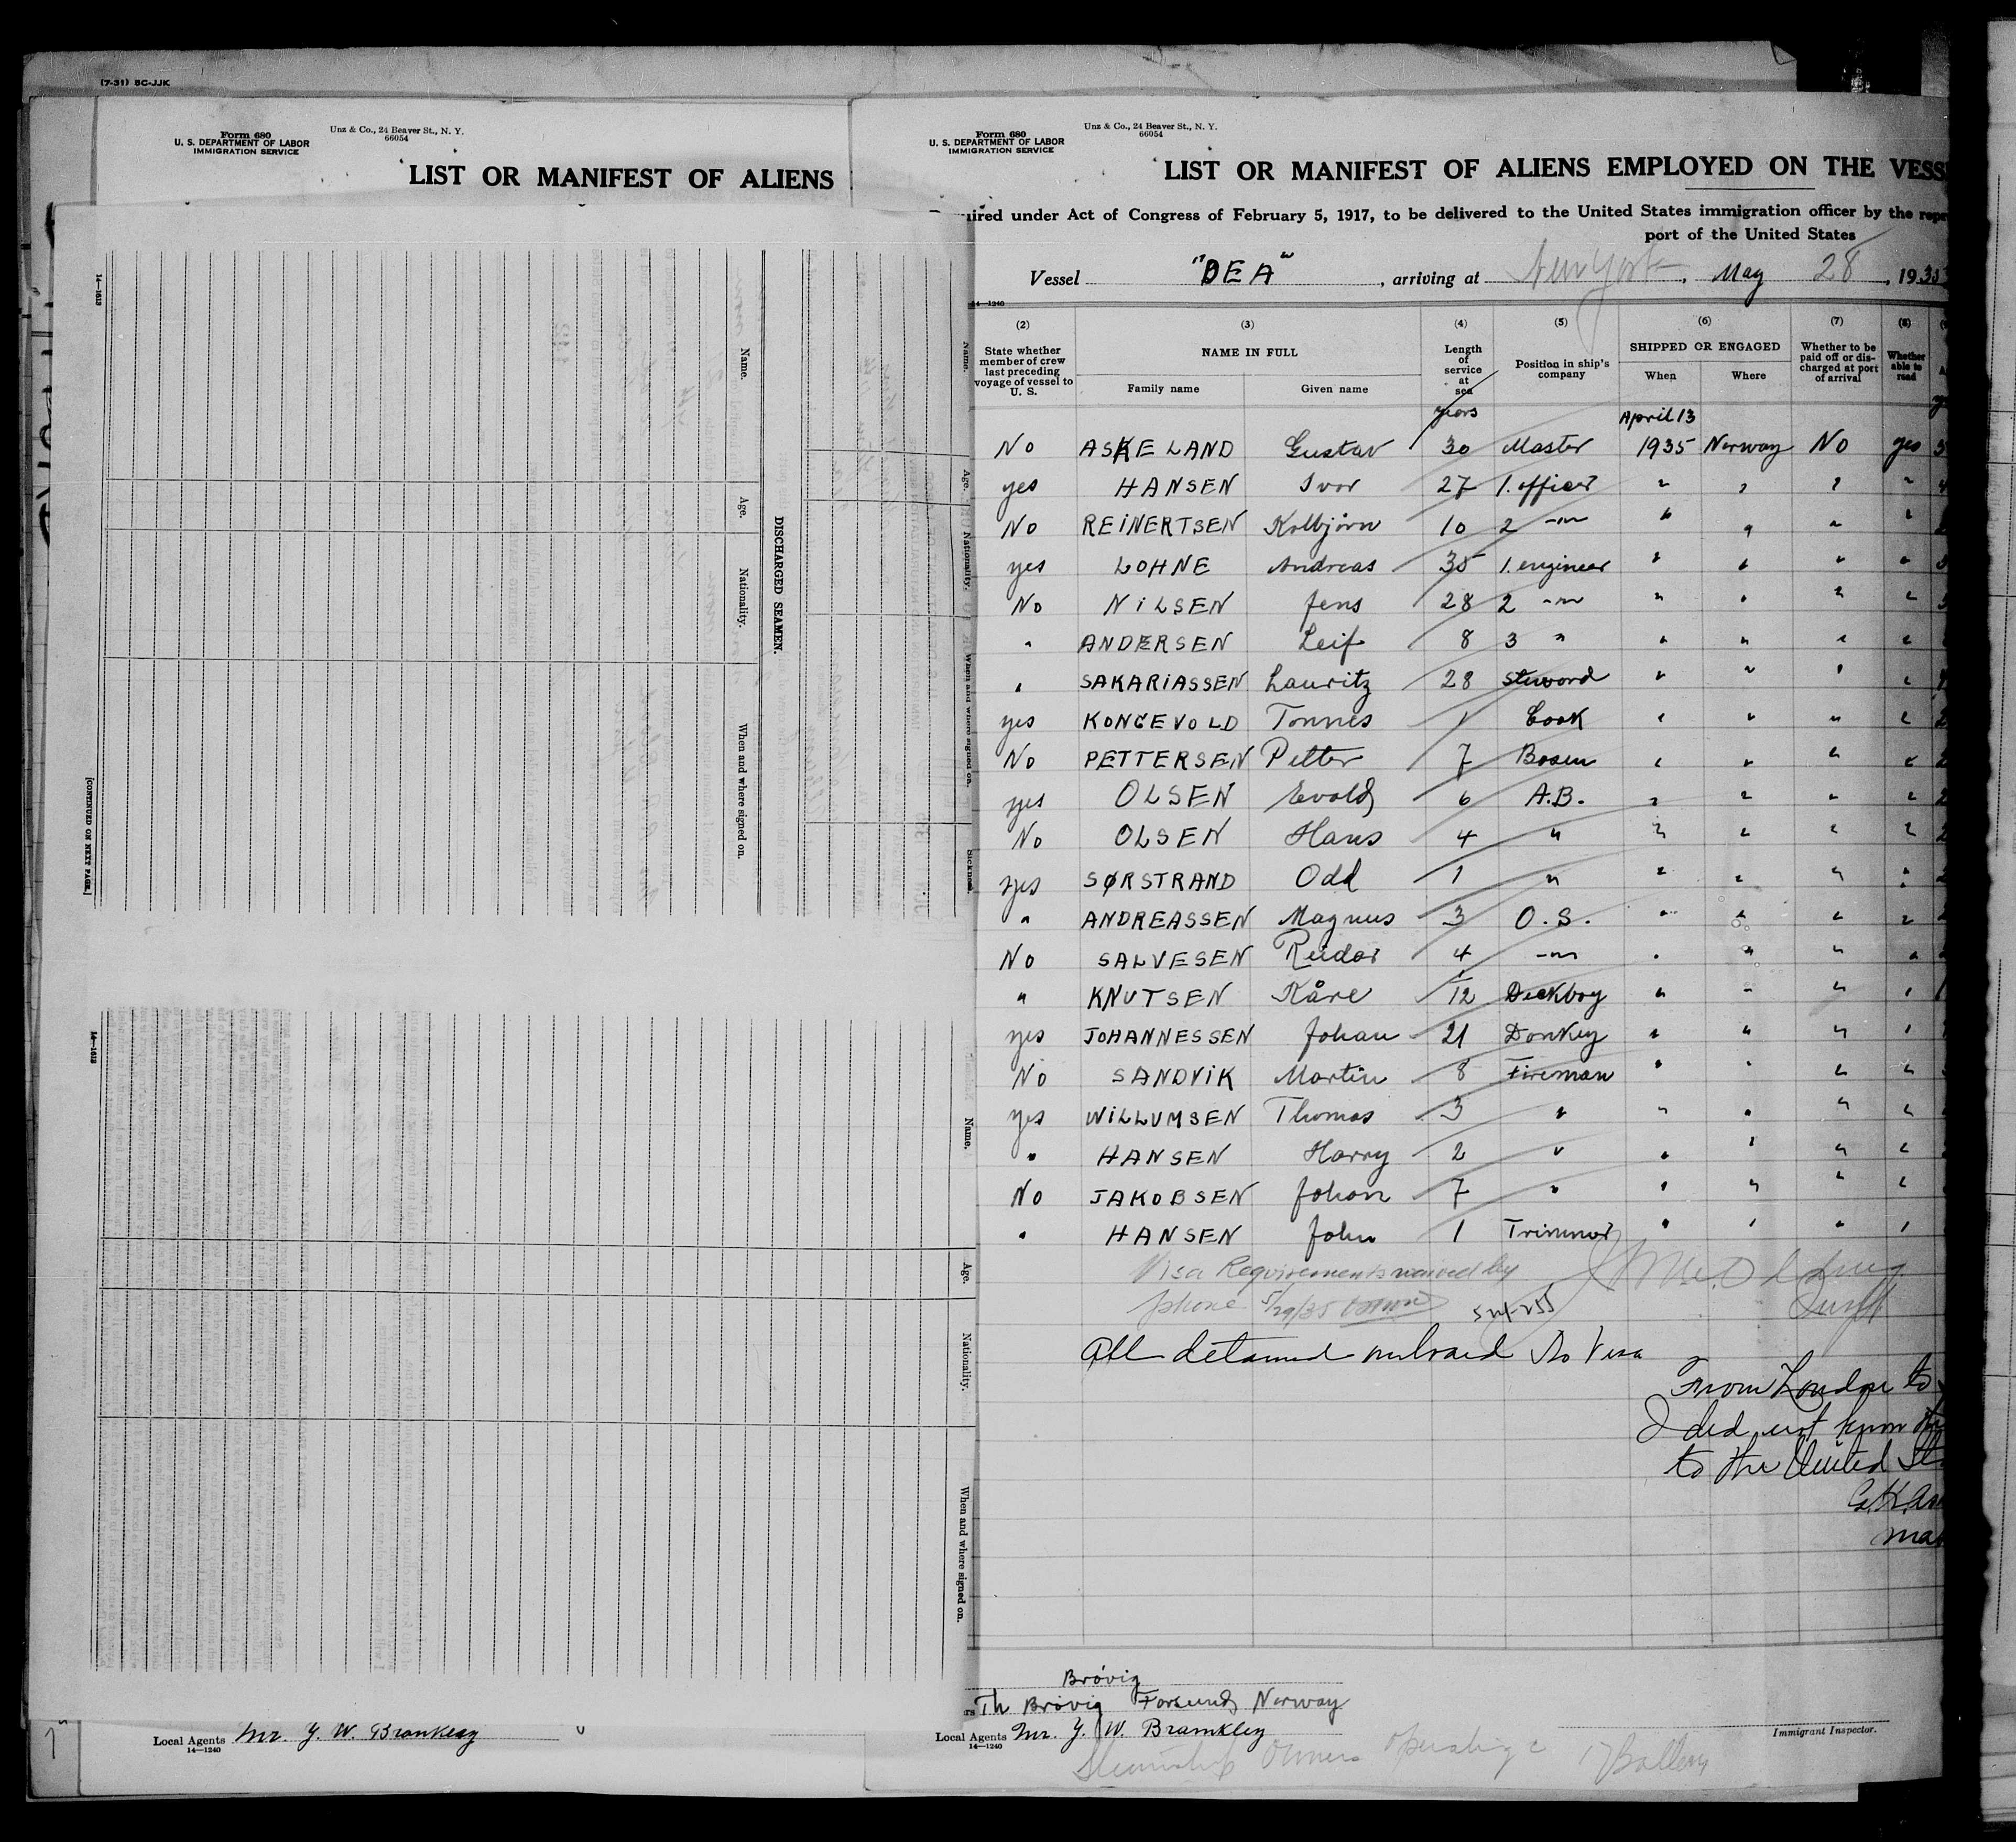 (7-31) SC-JJK
Form 680
U. S. DEPARTMENT OF LABOR
IMMIGRATION SERVICE
Unz & Co., 24 Beaver St., N. Y.
66054
LIST OR MANIFEST OF ALIENS
14—1613
Name.
Age.
Nationality.
When and where signed on.
DISCHARGED SEAMEN.
[CONTINUED ON NEXT PAGE.]
Name.
Age.
Nationality.
When and where signed on.
Sickness.
14—1613
Name.
Age.
Nationality.
When and where signed on.
Local Agents Mr. Y. W. Bramkley
14—1240
Form 680
U. S. DEPARTMENT OF LABOR
IMMIGRATION SERVICE
Unz & Co., 24 Beaver St., N. Y.
66054
LIST OR MANIFEST OF ALIENS EMPLOYED ON THE VESS
uired under Act of Congress of February 5, 1917, to be delivered to the United States immigration officer by the repr
port of the United States
Vessel "DEA", arriving at New York, May 28, 1935
14—1240
(2) (3) (4) (5) (6) (7) (8)
State whether member of crew last preceding voyage of vessel to U. S.
NAME IN FULL
Family name Given name
Length of service at sea
Position in ship's company
SHIPPED OR ENGAGED
When Where
Whether to be paid off or discharged at port of arrival
Whether able to read
years April 13
No ASKELAND Gustav 30 Master 1935 Norway No yes
yes HANSEN Ivor 27 1. officer " " " "
No REINERTSEN Kolbjörn 10 2 -"- " " " "
yes LOHNE Andreas 35 1. engineer " " " "
No NILSEN Jens 28 2 -"- " " " "
" ANDERSEN Leif 8 3 " " " " "
" SAKARIASSEN Lauritz 28 Steword " " " "
yes KONGEVOLD Tonnes 1 Cook " " " "
No PETTERSEN Petter 7 Bosun " " " "
yes OLSEN Evald 6 A.B. " " " "
No OLSEN Hans 4 " " " " "
yes SØRSTRAND Odd 1 " " " " "
" ANDREASSEN Magnus 3 O.S. " " " "
No SALVESEN Reidar 4 -"- " " " "
" KNUTSEN Kåre 1/12 Deckboy " " " "
yes JOHANNESSEN Johan 21 Donkey " " " "
No SANDVIK Martin 8 Fireman " " " "
yes WILLUMSEN Thomas 3 " " " " "
" HANSEN Harry 2 " " " " "
No JAKOBSEN Johan 7 " " " " "
" HANSEN John 1 Trimmer " " " "
Visa Requirements waived by
phone 5/29/35
All detained onboard No Visa
From London to
I did not know
to the United St
Brövig
Th Brövig Farsund, Norway
Local Agents Mr. Y. W. Bramkley
14—1240
Immigrant Inspector.
Steamship Owners Operating 17 Battery